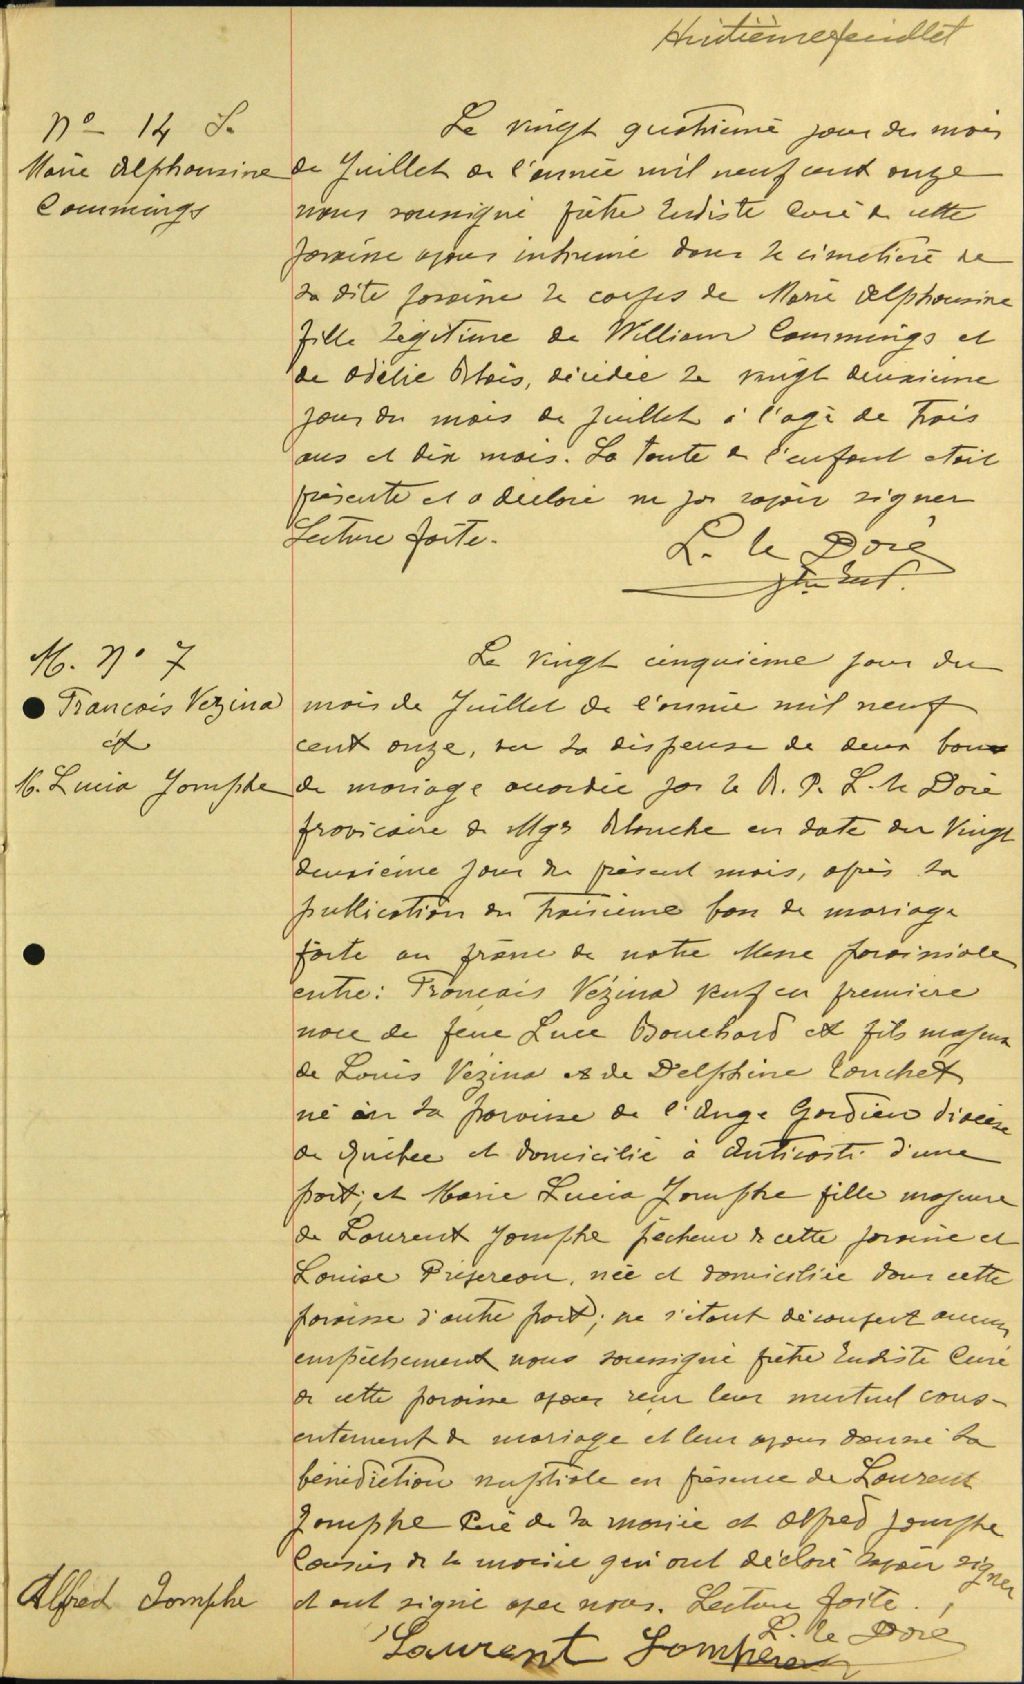 Huitième feuillet
No 14 S.
Marie Alphonsine
Commings
Le vingt quatrième jour du mois
de Juillet de l'année mil neuf cent onze
nous soussigné prêtre Eudiste Curé de cette
paroisse avons inhumé dans le cimetière de
la dite paroisse le corps de Marie Alphonsine
fille légitime de William Commings et
de Adélie Blais, décédée le vingt deuxième
jour du mois de Juillet à l'age de trois
ans et dix mois. La tante de l'enfant était
présente et a déclaré ne pas savoir signer
Lecture faite.
L. le Doré
ptre Eud.
M. No 7
Francois Vezina
et
M. Lucia Jomphe
Le vingt cinquième jour du
mois de Juillet de l'année mil neuf
cent onze, vu la dispense de deux bans
de mariage accordée par le R. P. L. le Doré
provicaire de Mgr Blanche en date du vingt
deuxième jour du présent mois, après la
publication du troisième ban de mariage
faite au prône de notre Messe paroissiale
entre: Francais Vézina veuf en première
noce de feue Luce Bouchard et fils majeur
de Louis Vézina et de Delphine Touchet
né en la paroisse de l'Ange Gardien diocèse
de Québec et domicilié à Anticosti d'une
part; et Marie Lucia Jomphe fille majeure
de Laurent Jomphe pêcheur de cette paroisse et
Louise née et domiciliée dans cette
paroisse d'autre part; ne s'étant découvert aucun
empêchement nous soussigné prêtre Eudiste Curé
de cette paroisse avons reçu leur mutuel cons-
entement de mariage et leur avons donné la
bénédiction nuptiale en présence de Laurent
Jomphe Père de la mariée et Alfred Jomphe
Cousin de la mariée qui ont déclaré savoir signer
et ont signé avec nous. Lecture faite.
Alfred Jomphe
L. le Doré
Laurent Jomphe